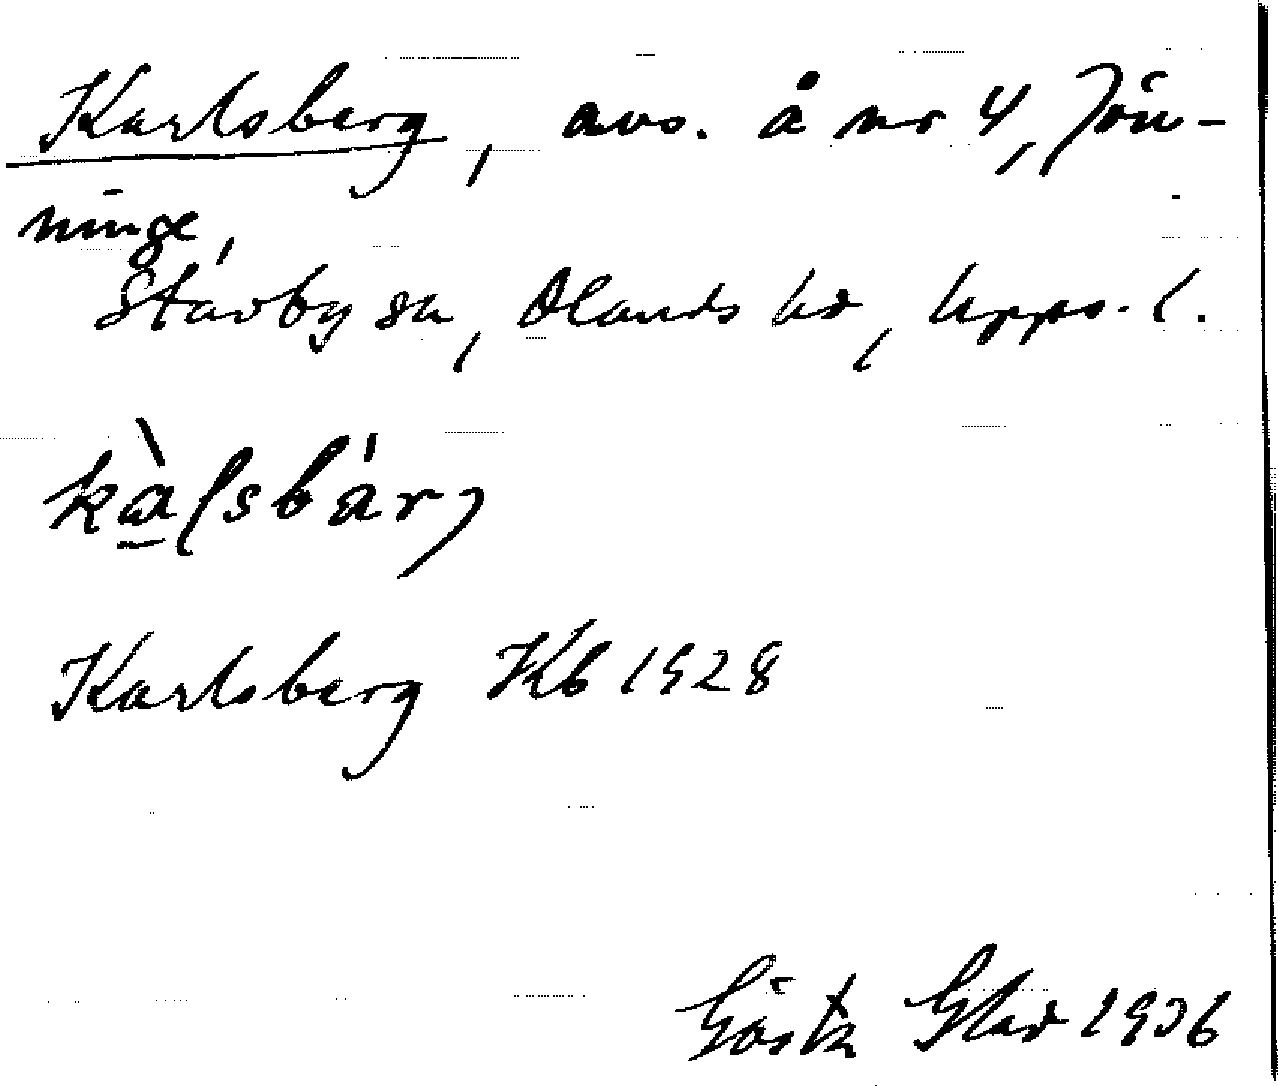 Karlsberg, avs. å nr 4, Jön-
ninge,
Stavby sn, Olands hd, Upps. l.
kàlsbár
Karlsberg Kb 1928
Gösta Glad 1936